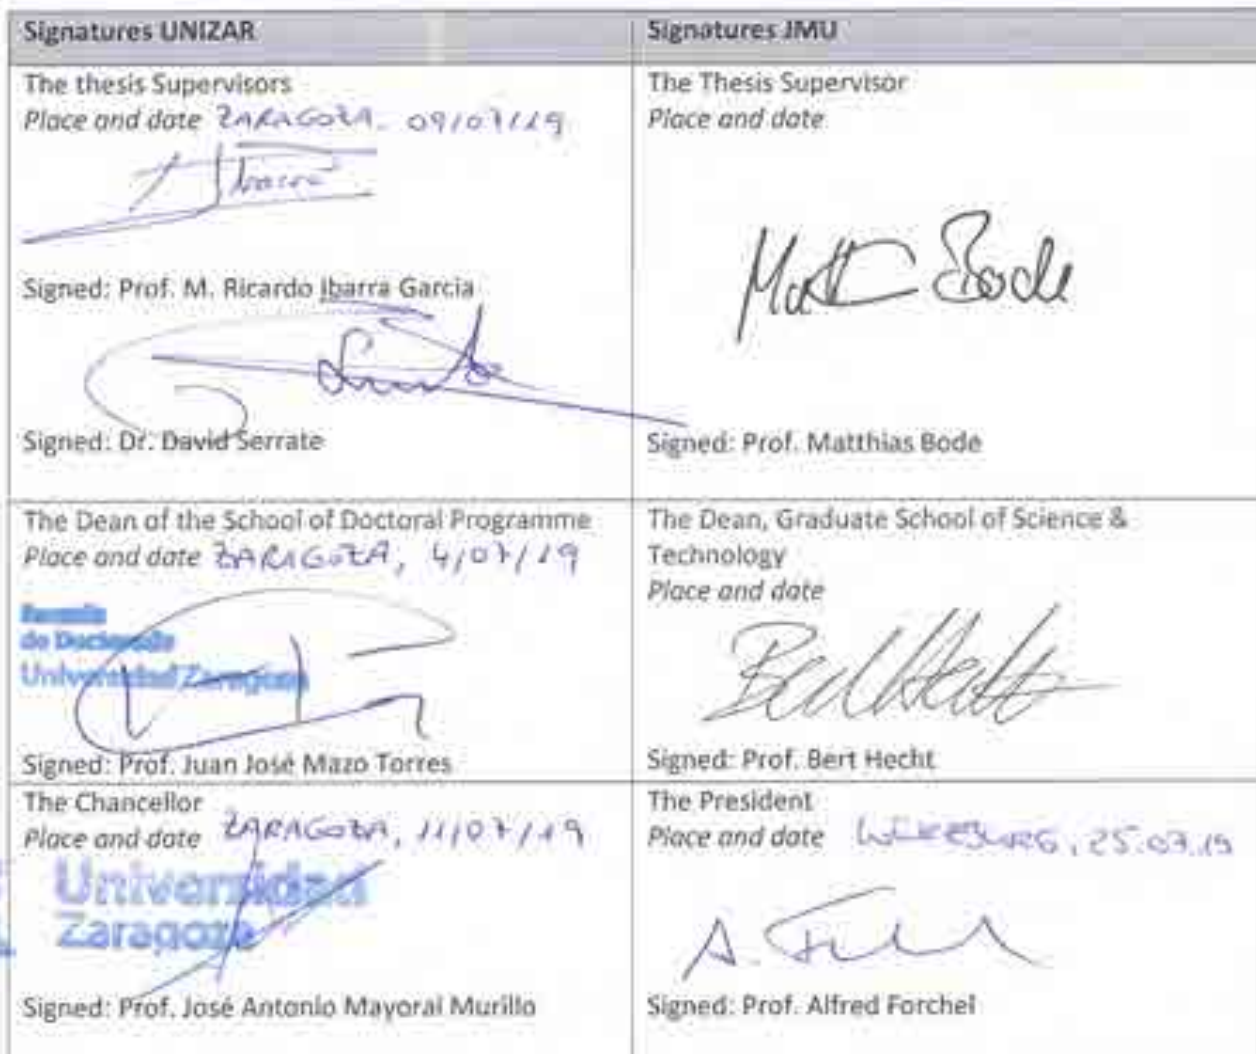 Signatures UNIZAR
The thesis Supervisors
Place and date ZARAGOZA, 09/07/19
Signed: Prof. M. Ricardo Ibarra García
Signed: Dr. David Serrate
Signatures JMU
The Thesis Supervisor
Place and date
Matt Bode
Signed: Prof. Matthias Bode
The Dean of the School of Doctoral Programme
Place and date ZARAGOZA, 4/07/19
de Doctorado
Universidad Zaragoza
Signed: Prof. Juan José Mazo Torres
The Dean, Graduate School of Science &
Technology
Place and date
Signed: Prof. Bert Hecht
The Chancellor
Place and date ZARAGOZA, 11/07/19
Universidad
Zaragoza
Signed: Prof. José Antonio Mayoral Murillo
The President
Place and date WÜRZBURG, 25.03.19
Signed: Prof. Alfred Forchel